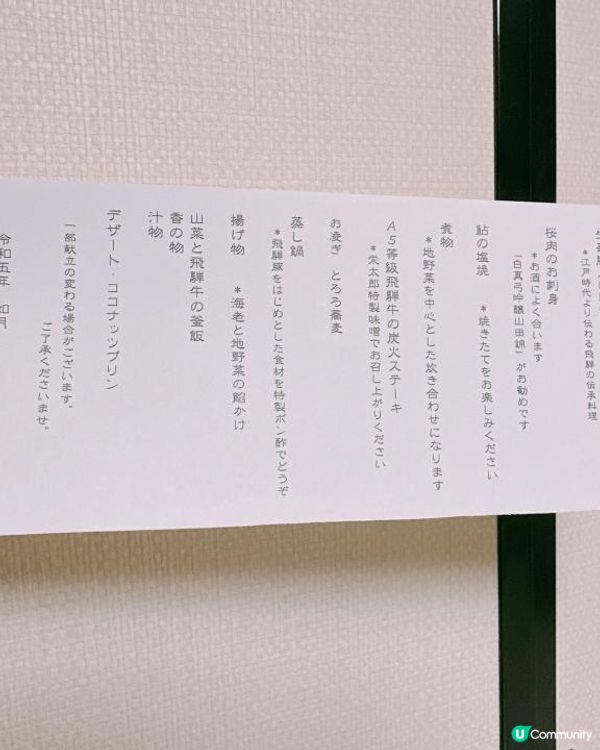 *江戸時代より伝わる飛騨の伝承料理
桜肉のお刺身
*お酒によく合います
「白真弓吟醸山田錦」がお勧めです
鮎の塩焼 *焼きたてをお楽しみください
煮物
*地野菜を中心とした炊き合わせになります
A5等級飛騨牛の炭火ステーキ
*栄太郎特製味噌でお召し上がりください
お凌ぎ とろろ蕎麦
蒸し鍋
*飛騨豚をはじめとした食材を特製ポン酢でどうぞ
揚げ物 *海老と地野菜の餡かけ
山菜と飛騨牛の釜飯
香の物
汁物
デザート・ココナッツプリン
一部献立の変わる場合がございます。
ご了承くださいませ。
令和五年 如月
U Community